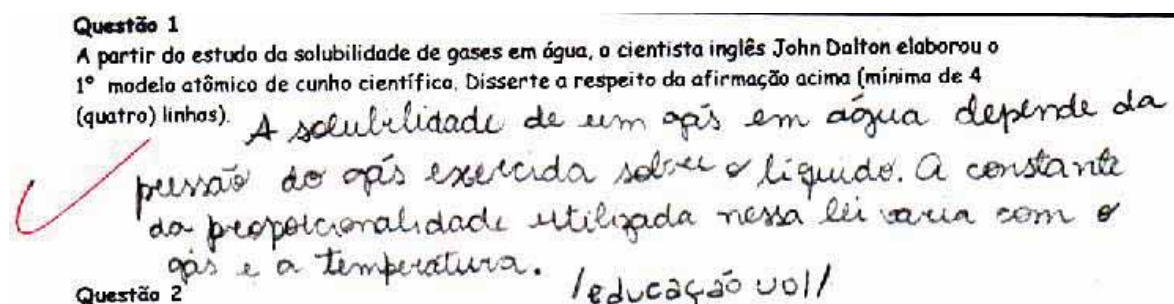 Questão 1
A partir do estudo da solubilidade de gases em água, o cientista inglês John Dalton elaborou o
1º modelo atômico de cunho científico. Disserte a respeito da afirmação acima (mínimo de 4
(quatro) linhas). A solubilidade de um gás em água depende da
pressão do gás exercida sobre o líquido. A constante
da proporcionalidade utilizada nessa lei varia com o
gás e a temperatura.
Questão 2 /educação uol/